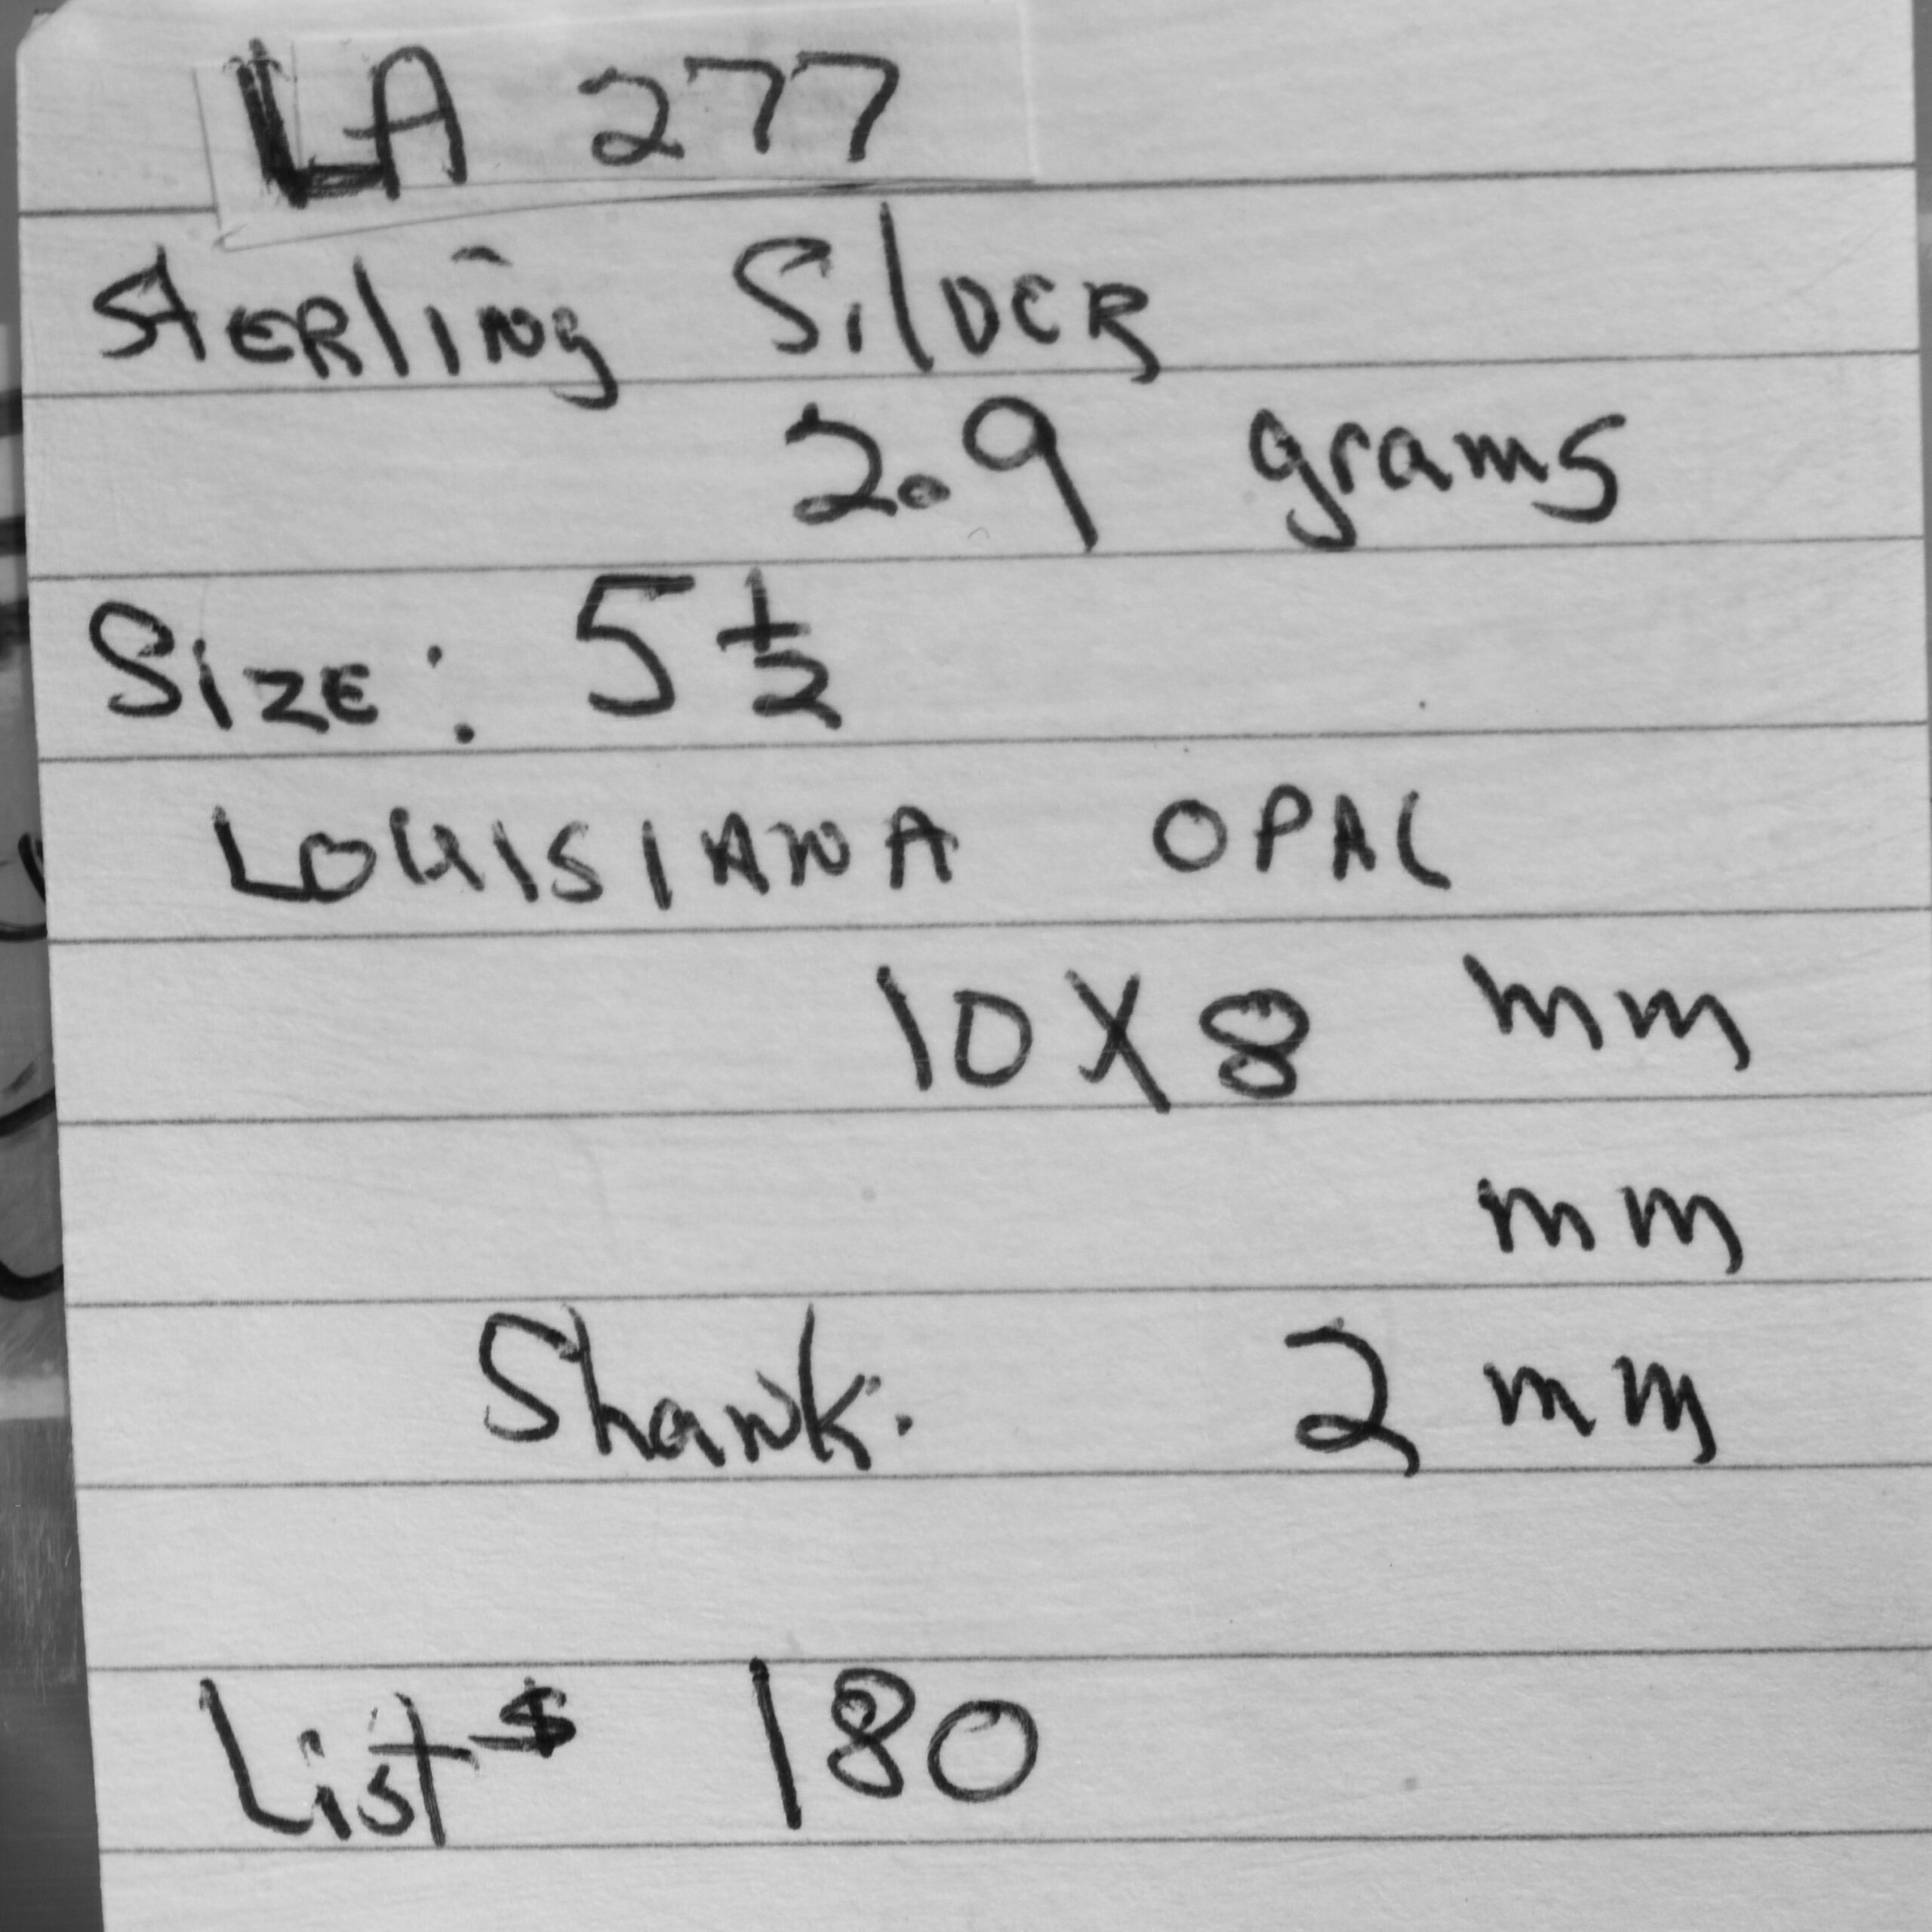 LA 277
Sterling Silver
2.9 grams
Size: 5 1/2
LOUISIANA OPAL
10 X 8 mm
mm
Shank: 2 mm
List $ 180